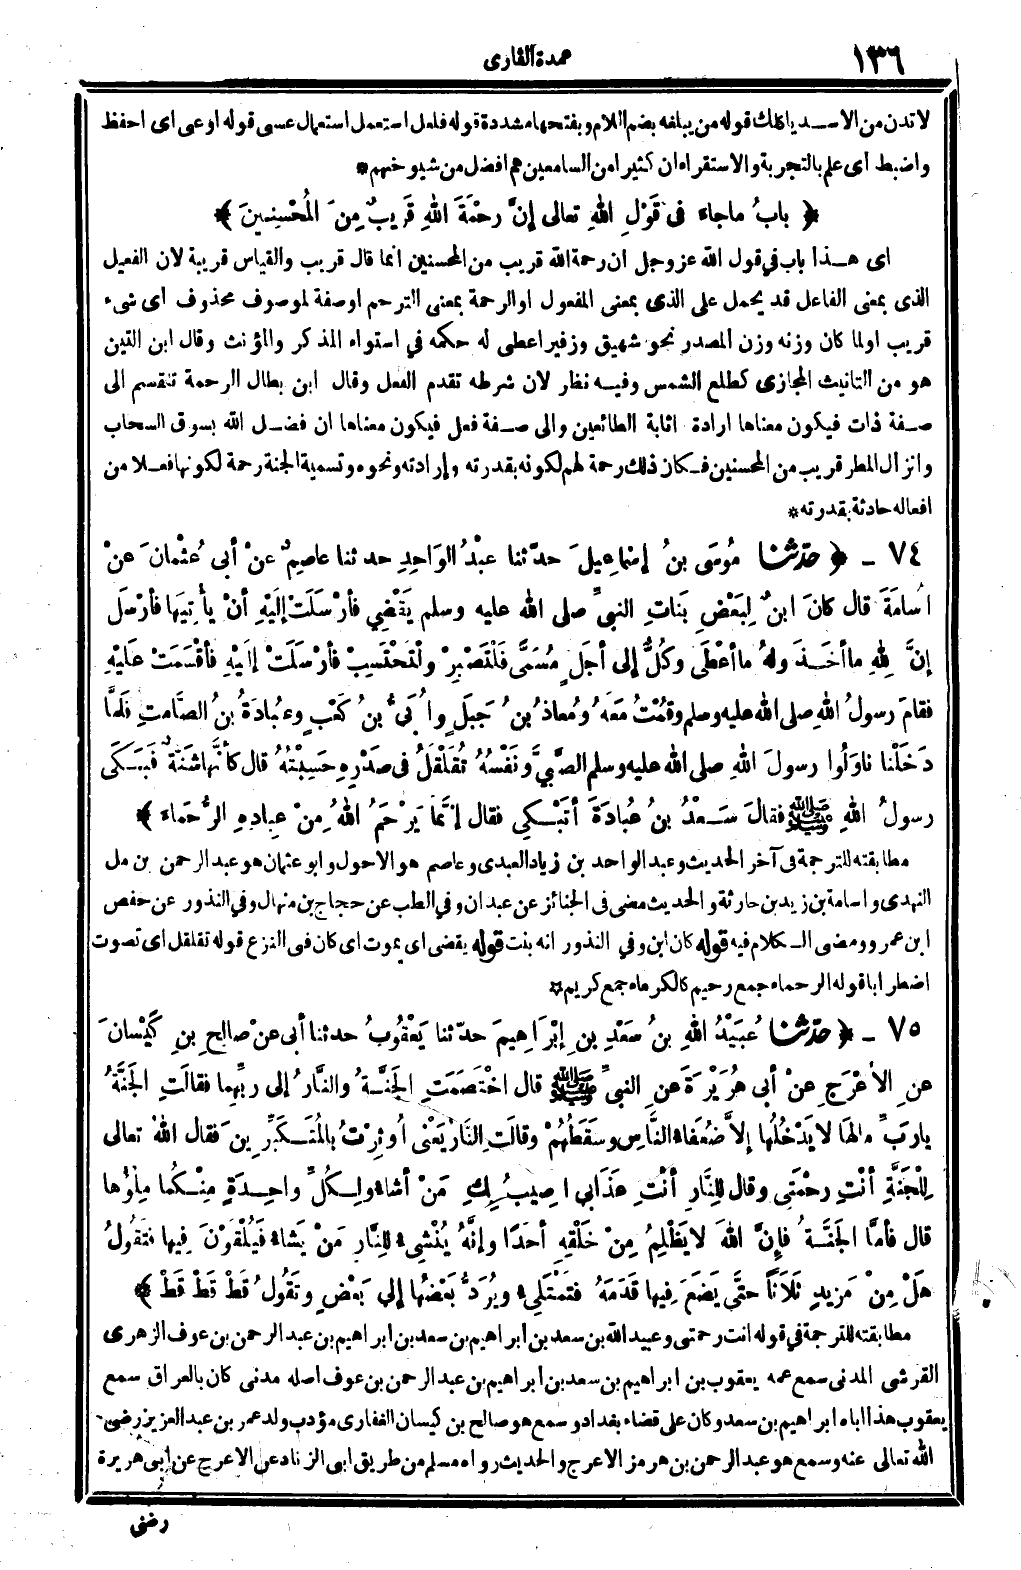 ١٣٦
عمدة القارى
لا تدن من الاسد يأكلك قوله من يبلغه بضم اللام وبفتحها مشددة قوله فلعل استعمل استعمال عسى قوله اوعى اى احفظ
واضبط اى علم بالتجربة والاستقراء ان كثيرا من السامعين هم افضل من شيوخهم *
﴿ بابُ ماجاءَ فى قَوْلِ اللهِ تعالى إنَّ رحْمَةَ اللهِ قَرِيبٌ مِنَ المُحْسِنِينَ ﴾
اى هذا باب في قول الله عز وجل ان رحمة الله قريب من المحسنين انما قال قريب والقياس قريبة لان الفعيل
الذى بمعنى الفاعل قد يحمل على الذى بمعنى المفعول او الرحمة بمعنى الترحم او صفة لموصوف محذوف اى شىء
قريب او لما كان وزنه وزن المصدر نحو شهيق وزفير اعطى له حكمه في استواء المذكر والمؤنث وقال ابن التين
هو من التانيث المجازى كطلع الشمس وفيه نظر لان شرطه تقدم الفعل وقال ابن بطال الرحمة تنقسم الى
صفة ذات فيكون معناها ارادة اثابة الطائعين والى صفة فعل فيكون معناها ان فضل الله بسوق السحاب
وانزال المطر قريب من المحسنين فكان ذلك رحمة لهم لكونه بقدرته وإرادته ونحوه وتسمية الجنة رحمة لكونها فعلا من
افعاله حادثة بقدرته *
٧٤ - ﴿ حدّثنا مُوسَى بنُ إسْماعِيلَ حدّثنا عبْدُ الوَاحِدِ حدثنا عاصِمٌ عنْ أبى عُثْمانَ عنْ
أسامَةَ قال كانَ ابنٌ لِبَعْضِ بَناتِ النبىِّ صلى الله عليه وسلم يَقْضِي فأرْسَلَتْ إلَيْهِ أنْ يأتِيَها فأرْسَلَ
إنَّ لِلهِ ما أخَذَ ولهُ ما أعْطَى وكُلٌّ إلى أجَلٍ مُسَمَّى فَلْتَصْبِرْ ولْتَحْتَسِبْ فأرْسَلَتْ إلَيْهِ فأقْسَمَتْ عَلَيْهِ
فقامَ رسولُ اللهِ صلى الله عليه وسلم وقُمْتُ مَعَهُ ومُعاذُ بنُ جَبَلٍ وأُبَىُّ بنُ كَعْبٍ وعُبادَةُ بنُ الصَّامتِ فَلمَّا
دَخَلْنا ناوَلُوا رسولَ اللهِ صلى الله عليه وسلم الصَّبِيَّ ونَفْسُهُ تُقَلْقَلُ فى صَدْرِهِ حَسِبْتُهُ قال كأنَّها شَنَّةٌ فَبَكَى
رسولُ اللهِ ﷺ فقالَ سَعْدُ بنُ عُبادَةَ أتَبْكِي فقال إنَّما يَرْحَمُ اللهُ مِنْ عِبادِهِ الرُّحَماءَ ﴾
مطابقته للترجمة فى آخر الحديث وعبد الواحد بن زياد العبدى وعاصم هو الاحول وابو عثمان هو عبد الرحمن بن مل
النهدى واسامة بن زيد بن حارثة والحديث مضى فى الجنائز عن عبدان وفي الطب عن حجاج بن منهال وفي النذور عن حفص
ابن عمرو ومضى الكلام فيه قوله كان ابن وفي النذور انه بنت قوله يقضى اى يموت اى كان فى النزع قوله تقلقل اى تصوت
اضطرابا قوله الرحماء جمع رحيم كالكرماء جمع كريم *
٧٥ - ﴿ حدّثنا عُبَيْدُ اللهِ بنُ سَعْدِ بنِ إبْرَاهِيمَ حدّثنا يَعْقُوبُ حدثنا أبى عنْ صالِحِ بنِ كَيْسانَ
عنِ الأَعْرَجِ عنْ أبى هُرَيْرَةَ عنِ النبىِّ ﷺ قال اخْتَصَمَتِ الجَنَّةُ والنَّارُ إلى ربِّهِما فقالَتِ الجَنَّةُ
يارَبِّ مالَها لا يَدْخُلُها إلاَّ ضُعَفاءُ النَّاسِ وسَقَطُهُمْ وقالَتِ النَّارُ يَعْنى أُوثِرْتُ بالمُتَكَبِّرِينَ فقال اللهُ تعالى
لِلْجَنَّةِ أنْتِ رحْمَتِى وقال لِلنَّارِ أنْتِ عذَابى أصِيبُ بِكِ مَنْ أشاءُ ولِكُلِّ واحِدَةٍ مِنْكُما مِلْؤُها
قال فأمَّا الجَنَّةُ فإِنَّ اللهَ لا يَظْلِمُ مِنْ خَلْقِهِ أحَدًا وإنَّهُ يُنْشِىءُ لِلنَّارِ مَنْ يَشاءُ فَيُلْقَوْنَ فِيها فتَقُولُ
هَلْ مِنْ مَزِيدٍ ثَلاَثًا حتَّى يَضَعَ فِيها قَدَمَهُ فتَمْتَلِىءُ ويُرَدُّ بَعْضُها إلى بَعْضٍ وتَقُولُ قَطْ قَطْ قَطْ ﴾
مطابقته للترجمة في قوله انت رحمتى وعبيد الله بن سعد بن ابراهيم بن سعد بن ابراهيم بن عبد الرحمن بن عوف الزهرى
القرشى المدنى سمع عمه يعقوب بن ابراهيم بن سعد بن ابراهيم بن عبد الرحمن بن عوف اصله مدنى كان بالعراق سمع
يعقوب هذا اباه ابراهيم بن سعد وكان على قضاء بغداد وسمع هو صالح بن كيسان الغفارى مؤدب ولد عمر بن عبد العزيز رضى
الله تعالى عنه وسمع هو عبد الرحمن بن هرمز الاعرج والحديث رواه مسلم من طريق ابى الزناد عن الاعرج عن ابى هريرة
رضى